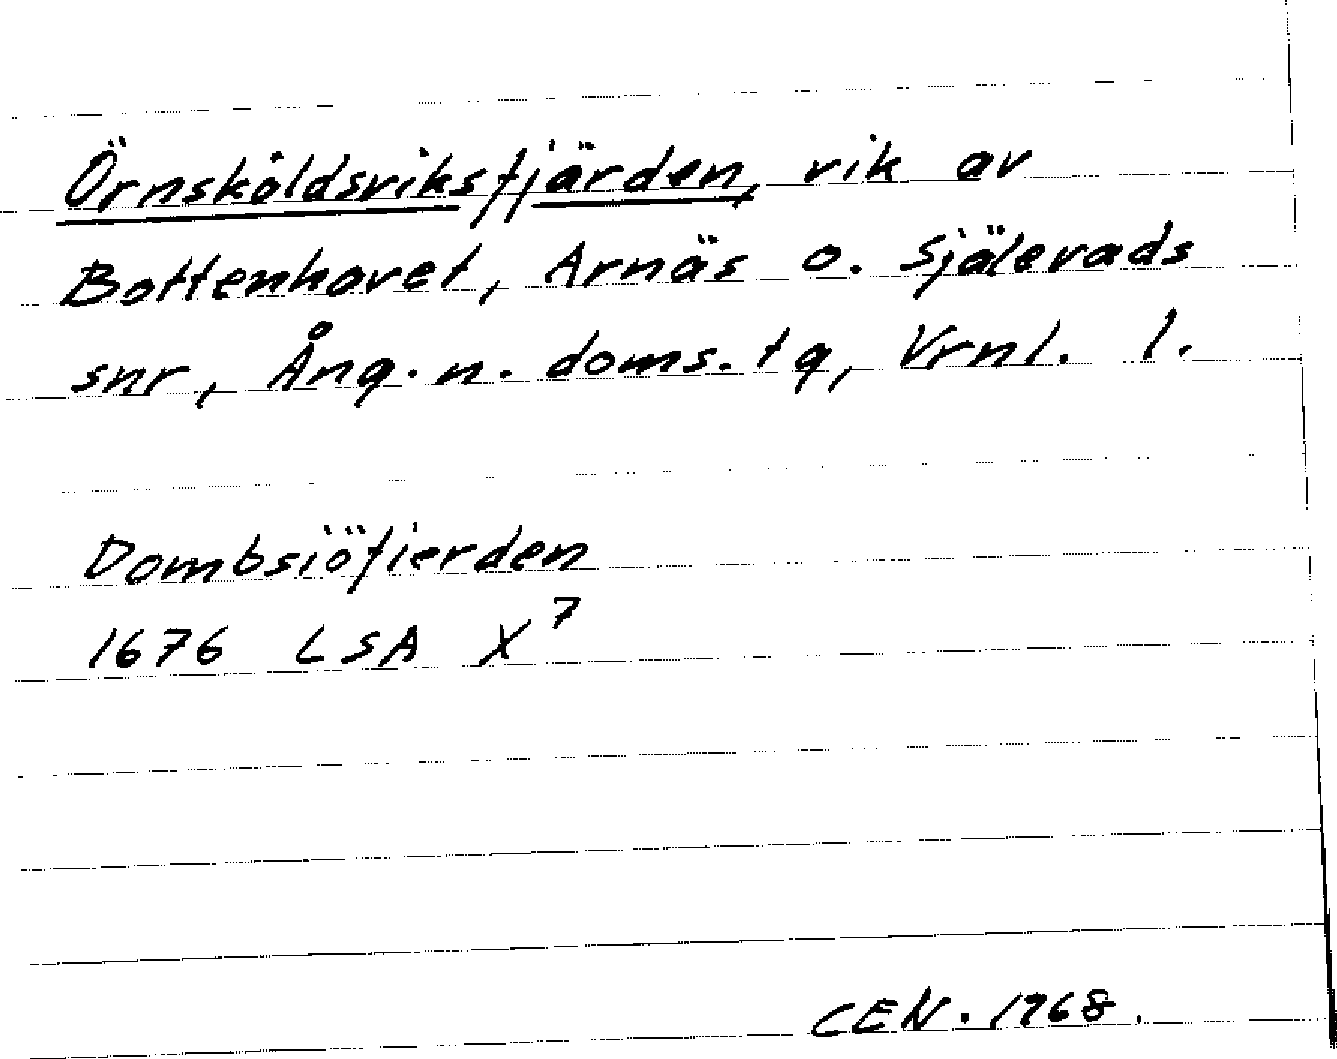 Örnsköldsviksfjärden, vik av
Bottenhavet, Arnäs o. Själevads
snr, Ång. n. doms. tg, Vrnl. l.
Dombsiöfierden
1676 LSA X⁷
CEN. 1968.